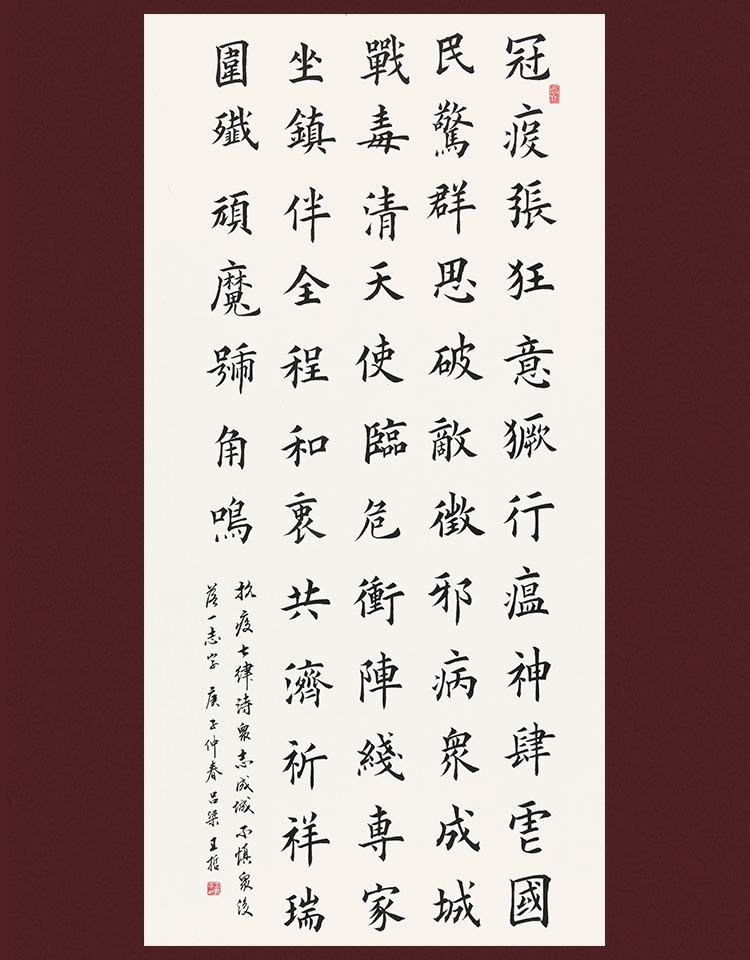 冠疫張狂意獗行瘟神肆虐國
民驚群思破敵徵邪病衆成城
戰毒清天使臨危衝陣綫專家
坐鎮伴全程和衷共濟祈祥瑞
圍殲頑魔號角鳴
抗疫七律詩衆志成城不慎衆後
落一志字 庚子仲春呂梁王哲